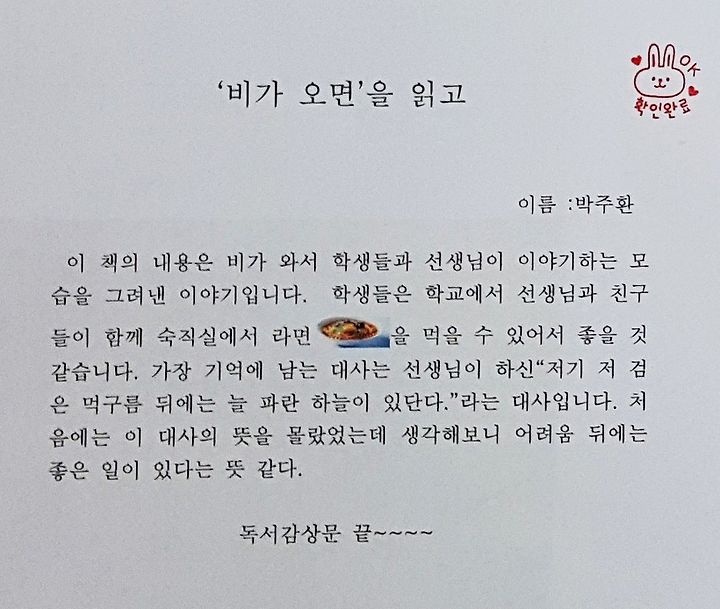 '비가 오면'을 읽고
OK
확인완료
이름 :박주환
이 책의 내용은 비가 와서 학생들과 선생님이 이야기하는 모
습을 그려낸 이야기입니다. 학생들은 학교에서 선생님과 친구
들이 함께 숙직실에서 라면 을 먹을 수 있어서 좋을 것
같습니다. 가장 기억에 남는 대사는 선생님이 하신“저기 저 검
은 먹구름 뒤에는 늘 파란 하늘이 있단다.”라는 대사입니다. 처
음에는 이 대사의 뜻을 몰랐었는데 생각해보니 어려움 뒤에는
좋은 일이 있다는 뜻 같다.
독서감상문 끝~~~~